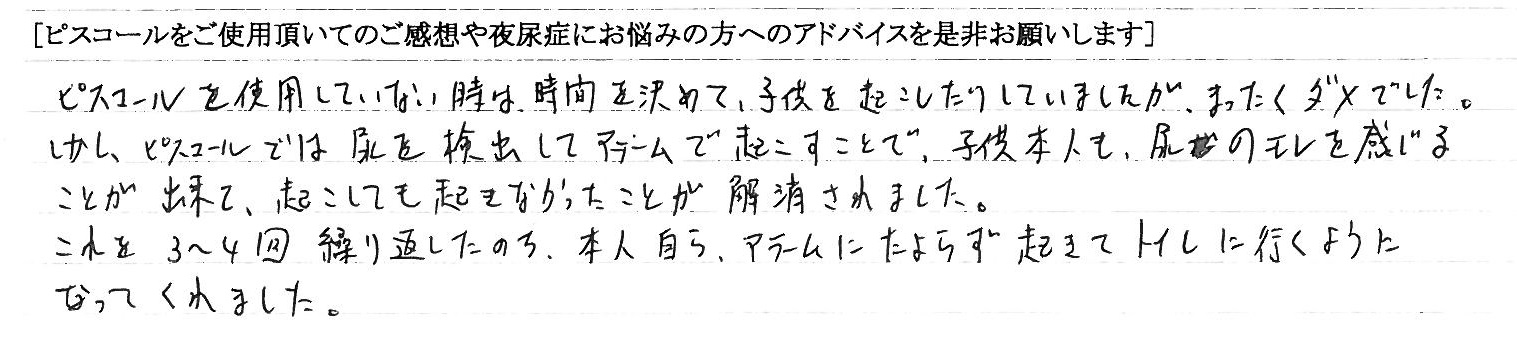 [ピスコールをご使用頂いてのご感想や夜尿症にお悩みの方へのアドバイスを是非お願いします]
ピスコールを使用していない時は、時間を決めて、子供を起こしたりしていましたが、まったくダメでした。
しかし、ピスコールでは尿を検出してアラームで起こすことで、子供本人も、尿のモレを感じる
ことが出来て、起こしても起きなかったことが解消されました。
これを3〜4回繰り返したのち、本人自ら、アラームにたよらず起きてトイレに行くように
なってくれました。